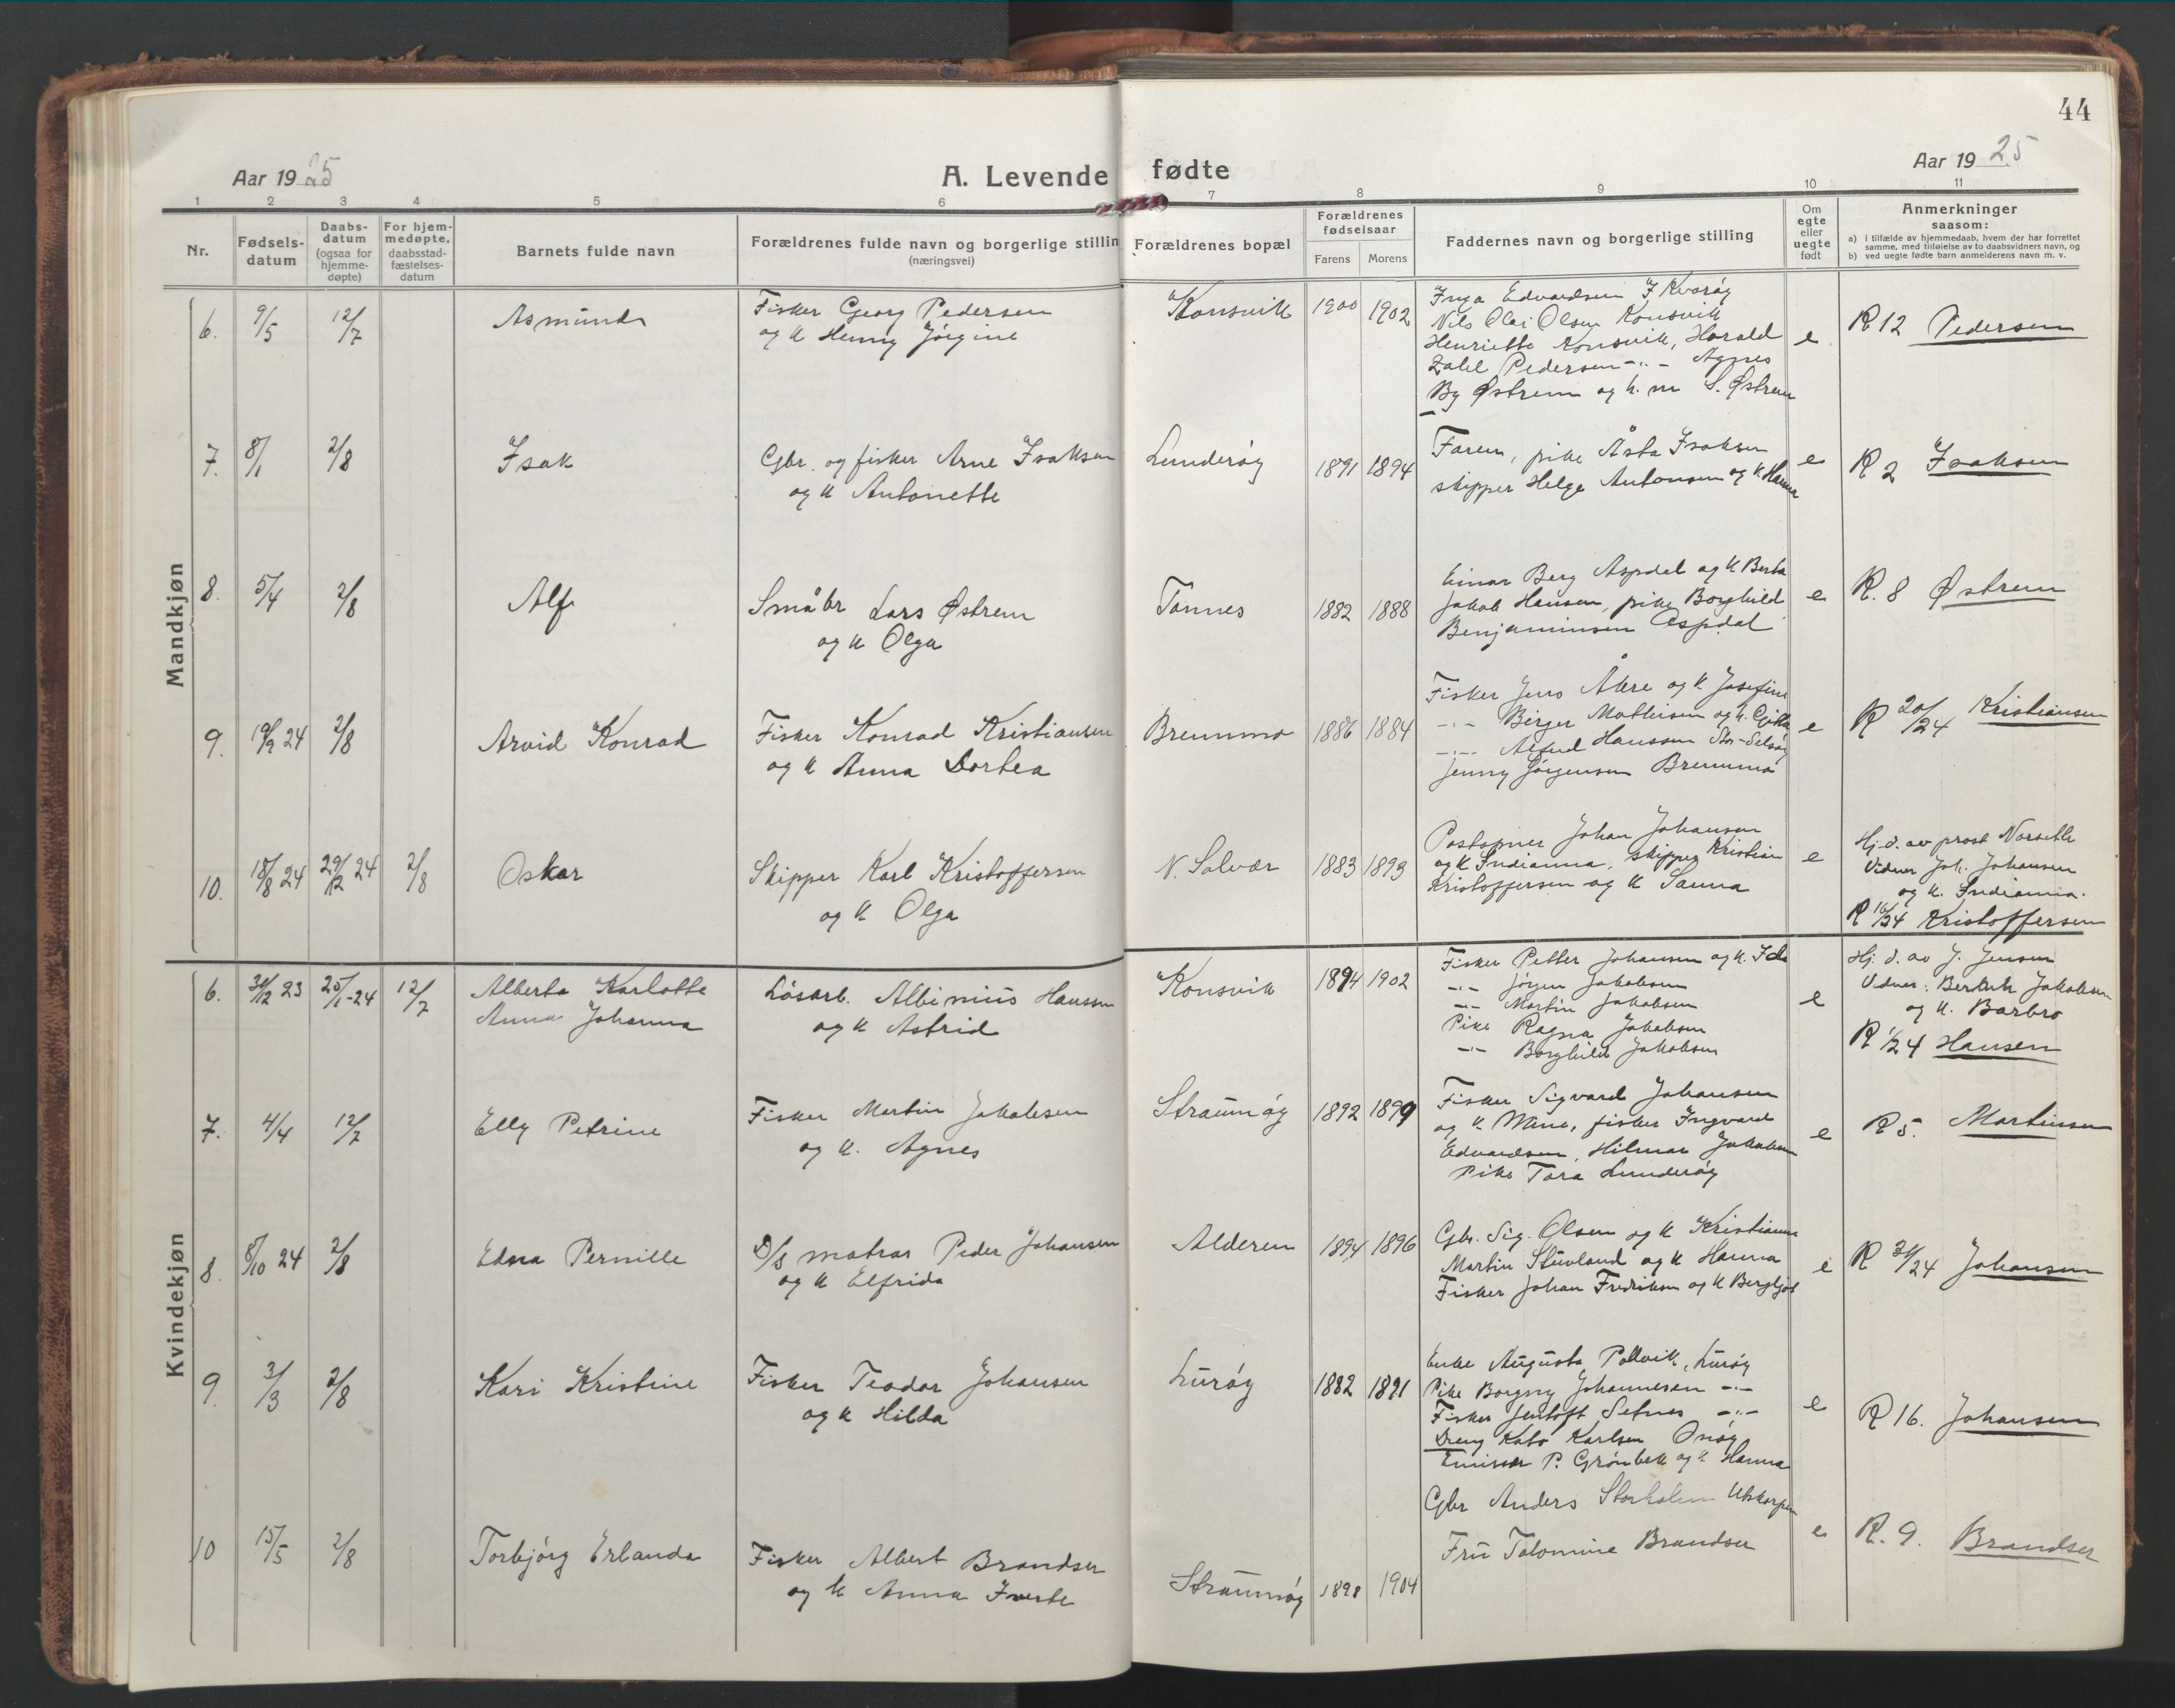 44
Aar 1925
A. Levende fødte
Aar 1925
1 2 3 4 5 6 7 8 9 10 11
Nr.
Fødsels-datum
Daabs-datum (ogsaa for hjemme-døpte)
For hjem-medøpte, daabsstad-fæstelses-datum
Barnets fulde navn
Forældrenes fulde navn og borgerlige stillin
(næringsvei)
Forældrenes bopæl
Forældrenes fødselsaar
Farens Morens
Faddernes navn og borgerlige stilling
Om egte eller uegte født
Anmerkninger
saasom:
a) i tilfælde av hjemmedaab, hvem der har forrettet samme, med tilføielse av to daabsvidners navn, og
b) ved uegte fødte barn anmelderens navn m. v.
Mandkjøn
6. 9/5 12/7 Asmund
Fisker Georg Pedersen
og k Henny Jørgine
Konsvik 1900 1902
Inga Edvardsen I Kvarøy
Nils Olai Olsen Konsvik
Henriette Konsvik, Harald
Zalil Pedersen -"- Agnes
By Østrem og k. m S. Østrem
e R 12 Pedersen
7. 8/1 2/8 Isak
Gbr. og fisker Arne Isaksen
og k Antonette
Lunderøy 1891 1894
Faren, pike Åsta Isaksen
skipper Helge Antonsen og k Hanna
e R 2 Isaksen
8. 5/4 2/8 Alf
Småbr Lars Østrem
og k Olga
Tonnes 1882 1888
Einar Berg Aspdal og k Berta
Jakob Hansen, pike Borghild
Benjaminsen Aspdal
e R. 8 Østrem
9. 19/9 24 2/8 Arvid Konrad
Fisker Konrad Kristiansen
og k Anna Dortea
Bremmo 1886 1884
Fisker Jens Åkre og k. Josefine
-"- Birger Mathisen og k. Gjitta
-"- Alfred Hanssen Stor-Selsøy
Jenny Jørgensen Bremmo
e R 20/24 Kristiansen
10. 18/8 24 29/12 24 2/8 Oskar
Skipper Karl Kristoffersen
og k Olga
N. Solvær 1883 1893
Postopner Johan Johansen
og k Indianna, skipper Kristian
Kristoffersen og k Sanna
e Hj. d. av prost Norseth
Vidner Joh. Johansen
og k. Indianna.
R 16/24 Kristoffersen
Kvindekjøn
6. 30/12 23 25/1-24 12/7 Alberta Karlotte
Anna Johanna
Løsarb. Albinius Hanssen
og k Astrid
Konsvik 1894 1902
Fisker Petter Johansen og k. Ida
-"- Jørgen Jakobsen
-"- Martin Jakobsen
Pike Ragna Jakobsen
-"- Borghild Jakobsen
e Hj. d. av J. Jensen
Vidner: Berteh Jakobsen
og k. Barbro
R 1/24 Hansen
7. 4/4 12/7 Elly Petrine
Fisker Martin Jakobsen
og k. Agnes
Straumøy 1892 1899
Fisker Sigvard Johansen
og k. Mine, fisker Ingvard
Edvardsen, Hilmar Jakobsen
Pike Tora Lunderøy
e R 5. Martinsen
8. 8/10 24 2/8 Edna Pernille
D/s matros Peder Johansen
og k Elfrida
Alderen 1894 1896
Gbr. Sig. Olsen og k Kristianna
Martin Stuvland og k Hanna
Fisker Johan Fredriksen og k Bergljot
e R 31/24 Johansen
9. 3/3 2/8 Kari Kristine
Fisker Teodor Johansen
og k Hilda
Lurøy 1882 1891
Enke Augusta Pollvik, Lurøy
Pike Borgny Johannesen -"-
Fisker Jentoft Setnes -"-
Dreng Kato Karlsen Onøy
Emissær P. Grønbek og k Hanna
e R 16. Johansen
10 15/5 2/8 Torbjørg Erlanda
Fisker Albert Brandser
og k Anna Iverte
Straumøy 1898 1904
Gbr Anders Storholm Utskarpen
Fru Tolomine Brandser
e R. 9. Brandser